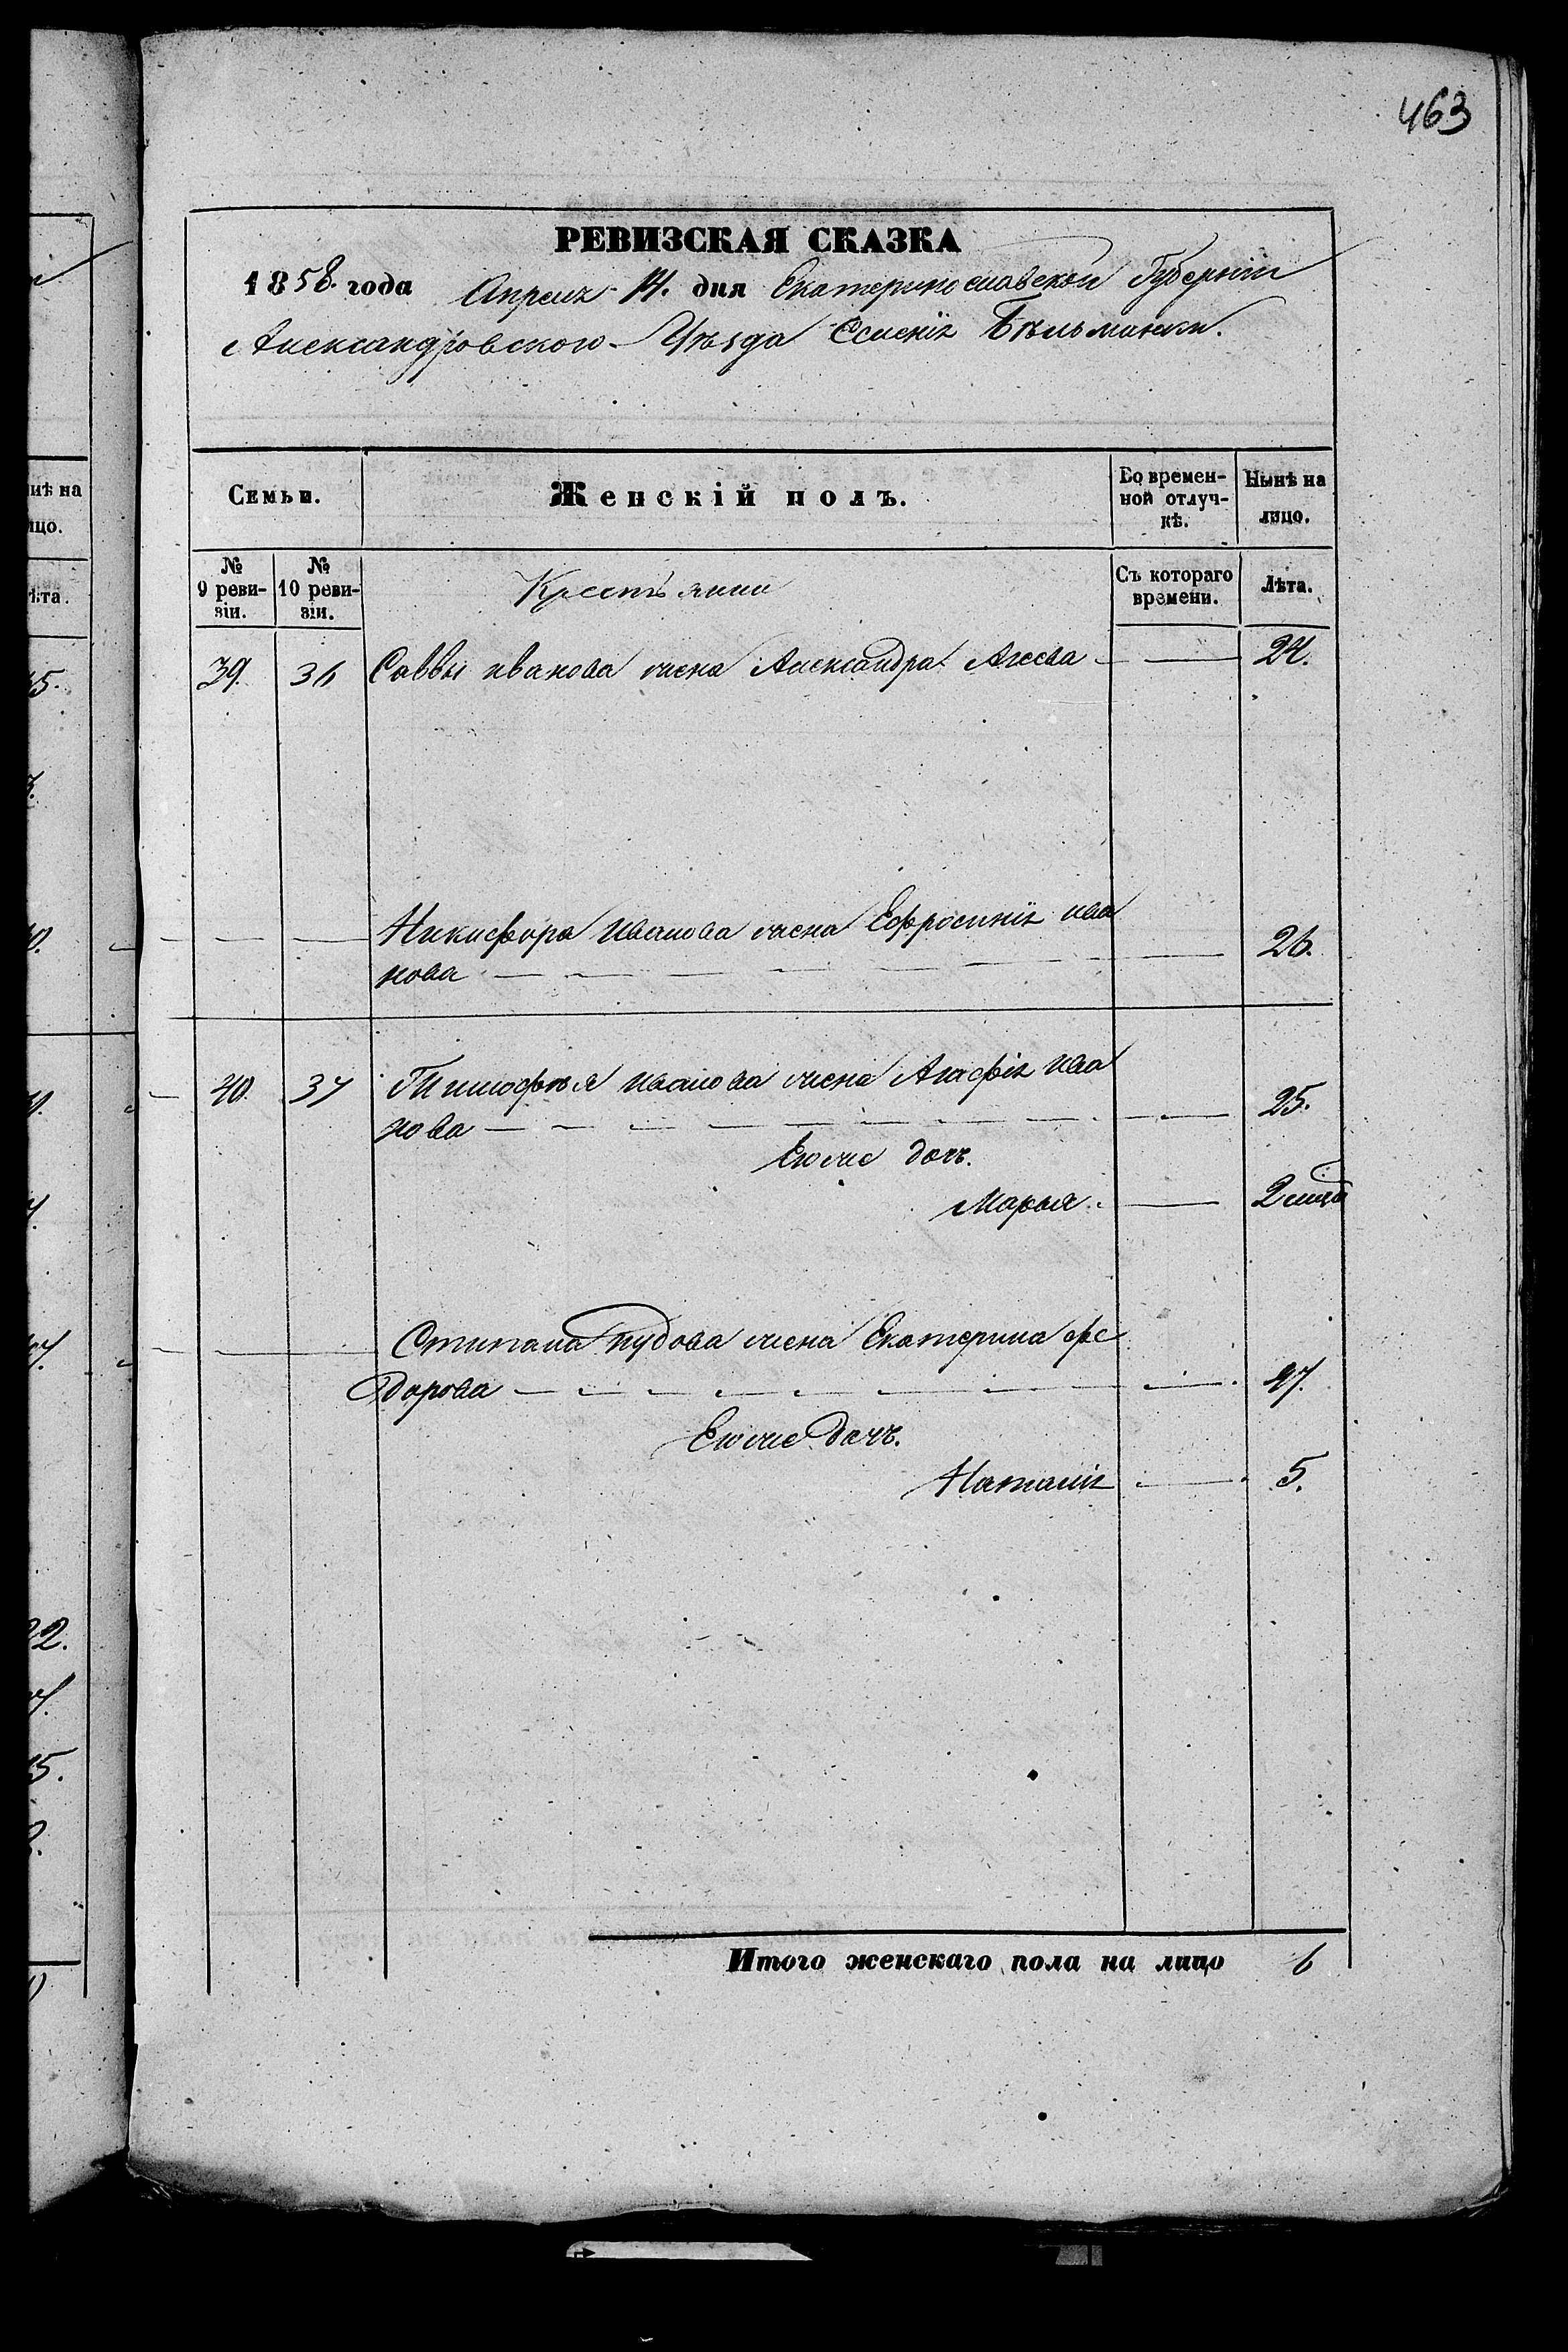 463
РЕВИЗСКАЯ СКАЗКА
1858. года Апреля 14. дня Екатеринославской Губерніи
Александровского Уѣзда Селенія Бельманки.
Семьи.
Женскій полъ.
Во времен-
ной отлуч-
кѣ.
Нынѣ на
лицо.
№
9 реви-
зіи.
№
10 реви-
зіи.
Крестьянки
Съ котораго
времени.
Лѣта.
39. 36 Саввы иванова жена Александра 24.
Никифора Иванова жена Ефросинія ива
нова 26.
40. 37 Тимофея Иванова жена Агафія Ива
нова 25.
Ею же дочь.
Марья 2
Стипана пудова жена Екатерина фе
дорова 27.
Ею же дочь.
Наталія 5.
Итого женскаго пола на лицо 6
иѣ на
ицо.
ѣта.
5.
22.
15.